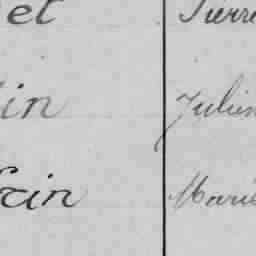 et Pierre
in Julien
rin Marie